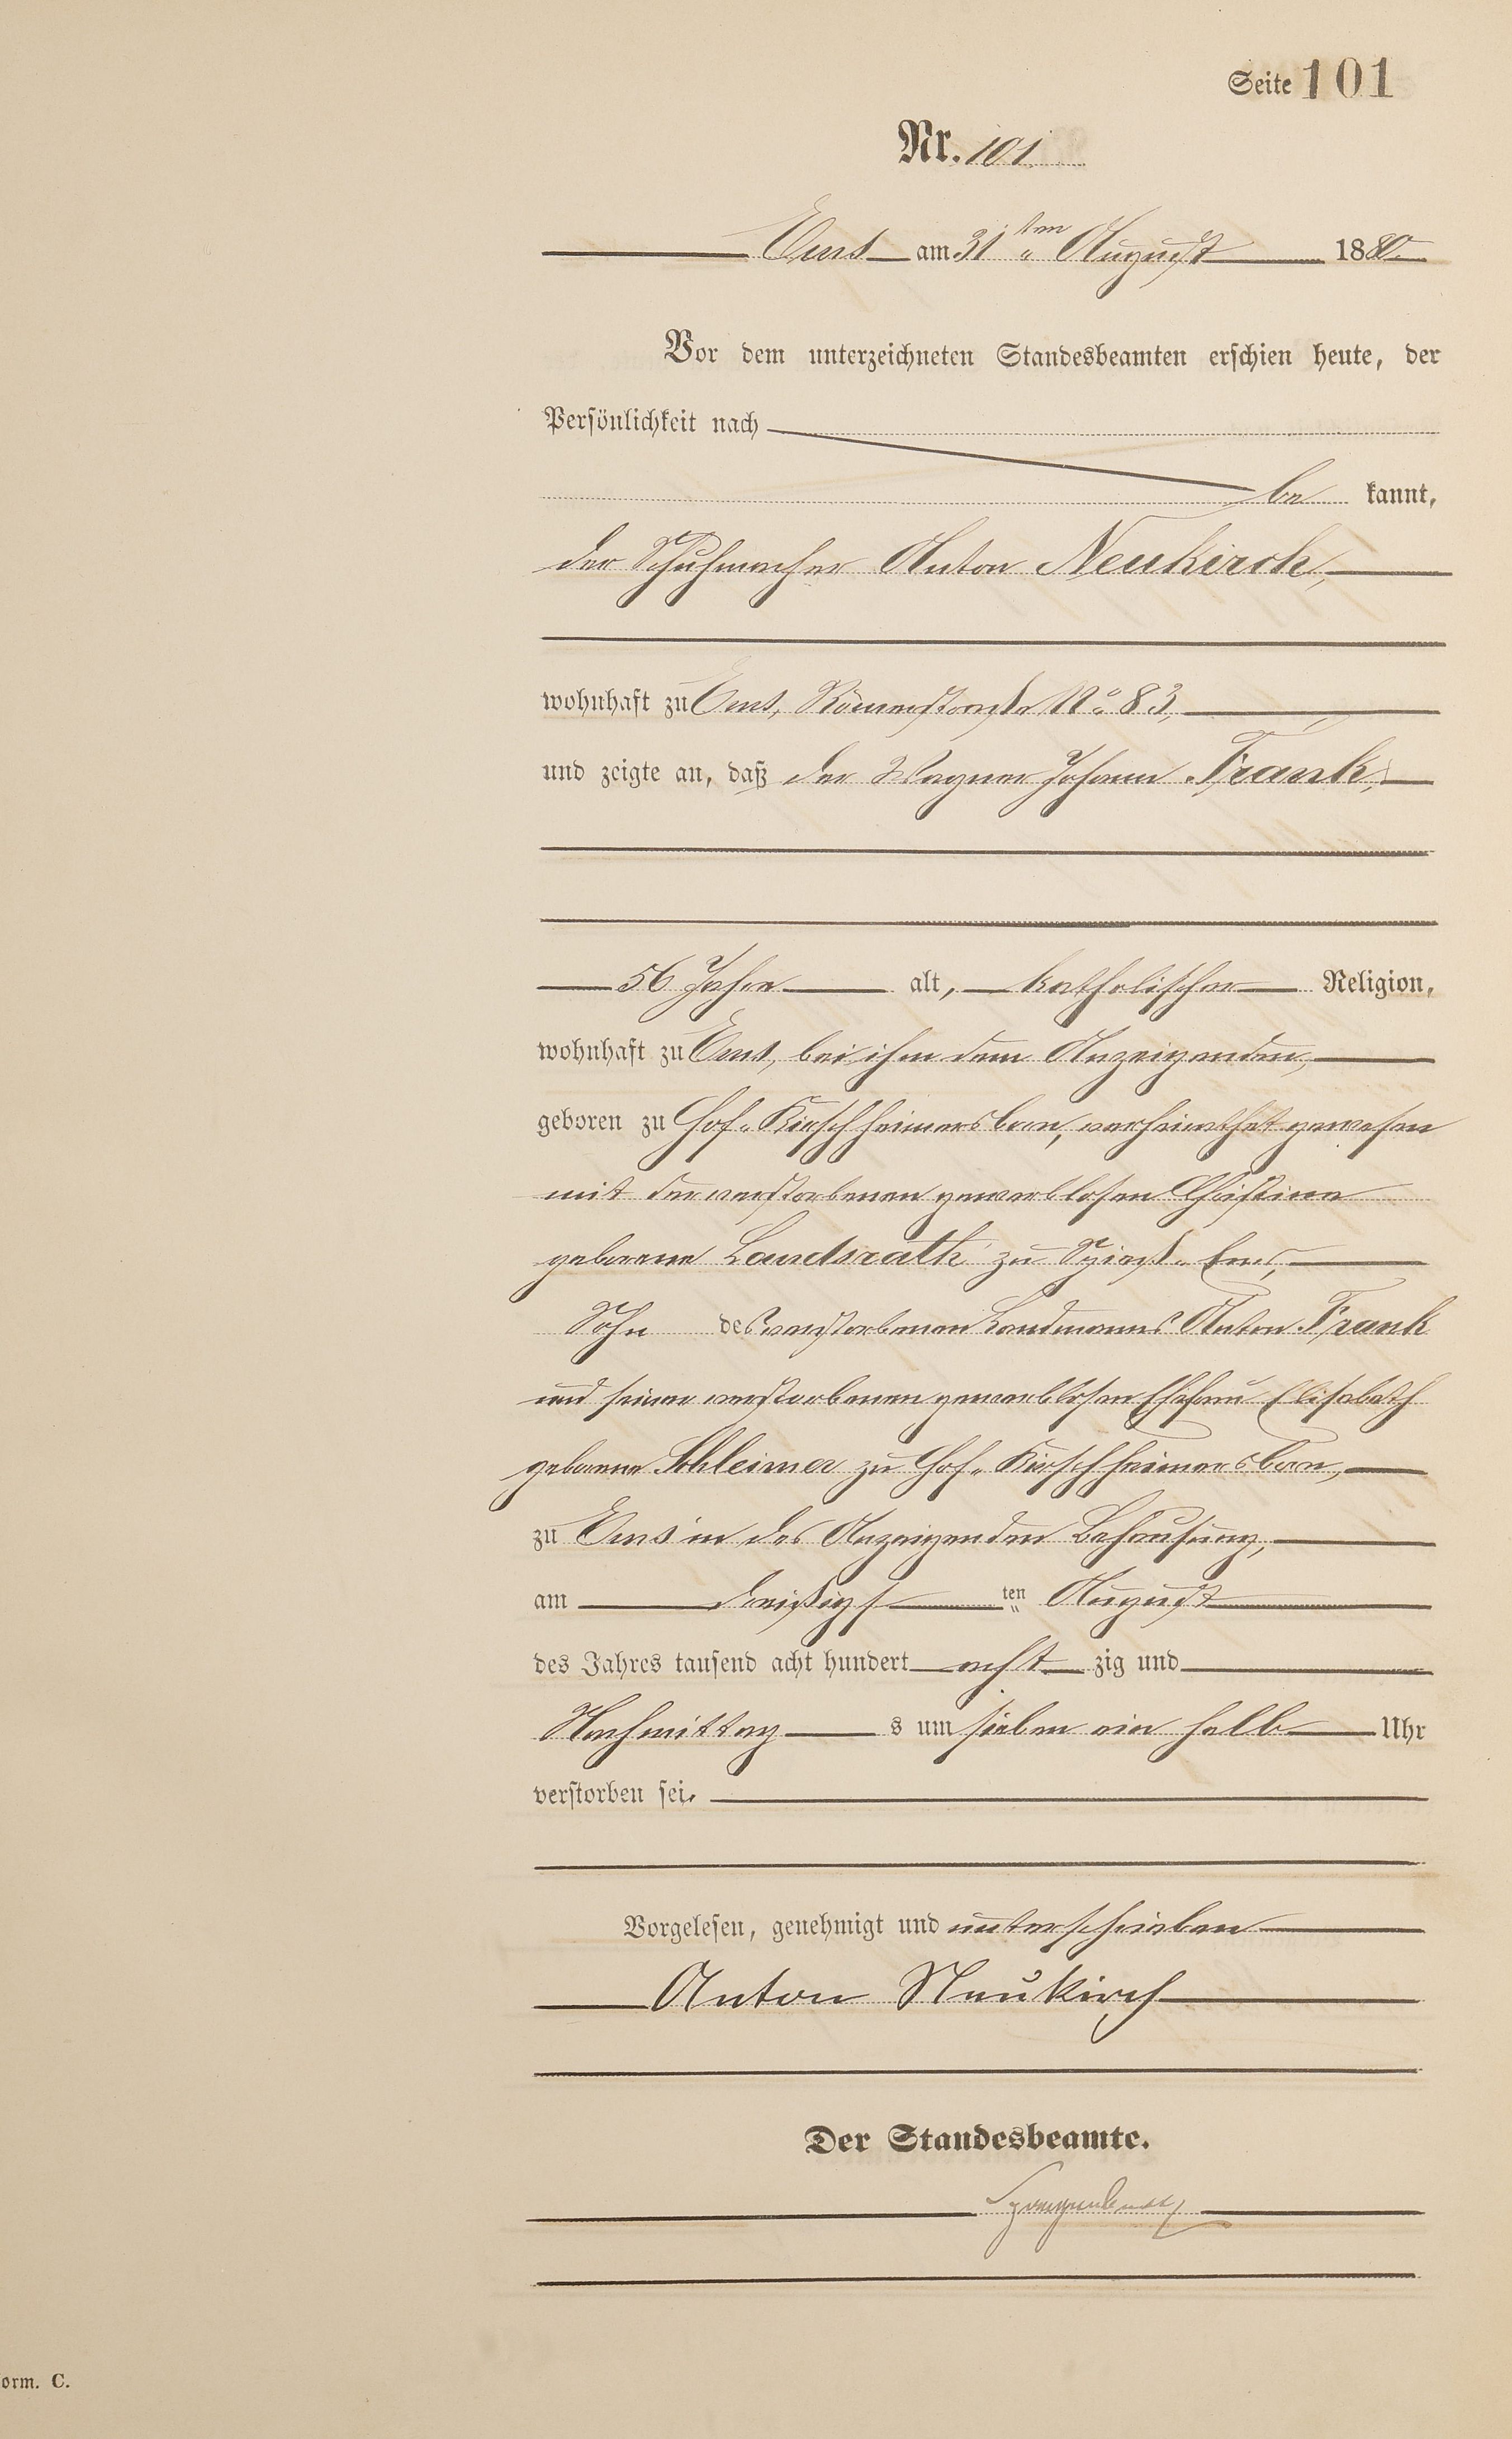 Seite 101
Nr. 101
Ems am 31ten August 1880.
Vor dem unterzeichneten Standesbeamten erschien heute, der
Persönlichkeit nach
be kannt,
der Schuhmacher Anton Neukirch,
wohnhaft zu Ems, Römerstraße No. 83,
und zeigte an, daß der Wagner Johann Frank,
56 Jahre alt, katholischer Religion,
wohnhaft zu Ems, bei ihm dem Anzeigenden,
geboren zu Hof-Kirschheimersborn, verheirathet gewesen
mit der verstorbenen gewerblosen Christine
geborene Landsrath zu Spieß-Ems,
Sohn des verstorbenen Landmanns Anton Frank
und seiner verstorbenen gewerblosen Ehefrau Elisabeth
geborene Schleimer zu Hof-Kirschheimersborn,
zu Ems in des Anzeigenden Behausung,
am dreißigsten August
des Jahres tausend acht hundert acht zig und
Nachmittag s um sieben ein halb Uhr
verstorben sei.
Vorgelesen, genehmigt und unterschrieben
Anton Neukirch
Der Standesbeamte.
orm. C.